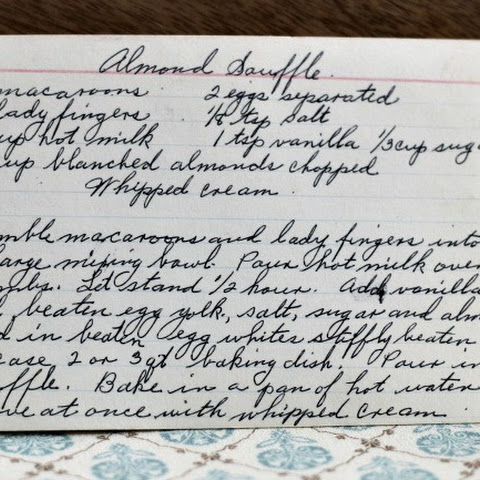 Almond Souffle.
macaroons 2 eggs separated
lady fingers 1/8 tsp salt
up hot milk 1 tsp vanilla 1/3 cup suga
cup blanched almonds chopped
Whipped cream.
mble macaroons and lady fingers into
large mixing bowl. Pour hot milk over
mbs. Let stand 1/2 hour. Add vanilla
beaten egg yolk, salt, sugar and alm
d in beaten egg whites stiffly beaten
ease 2 or 3 qt baking dish. Pour in
uffle. Bake in a pan of hot water
ve at once with whipped cream.